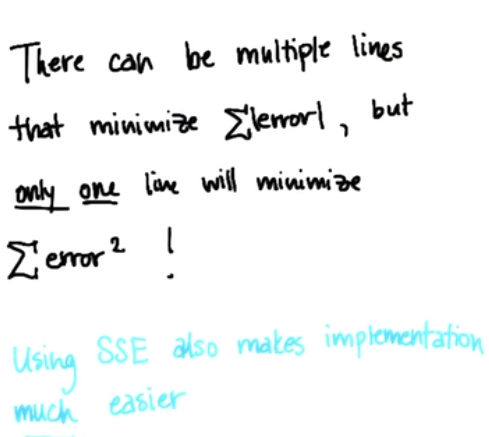 There can be multiple lines
that minimize Σ|error|, but
only one line will minimize
Σ error² !
Using SSE also makes implementation
much easier